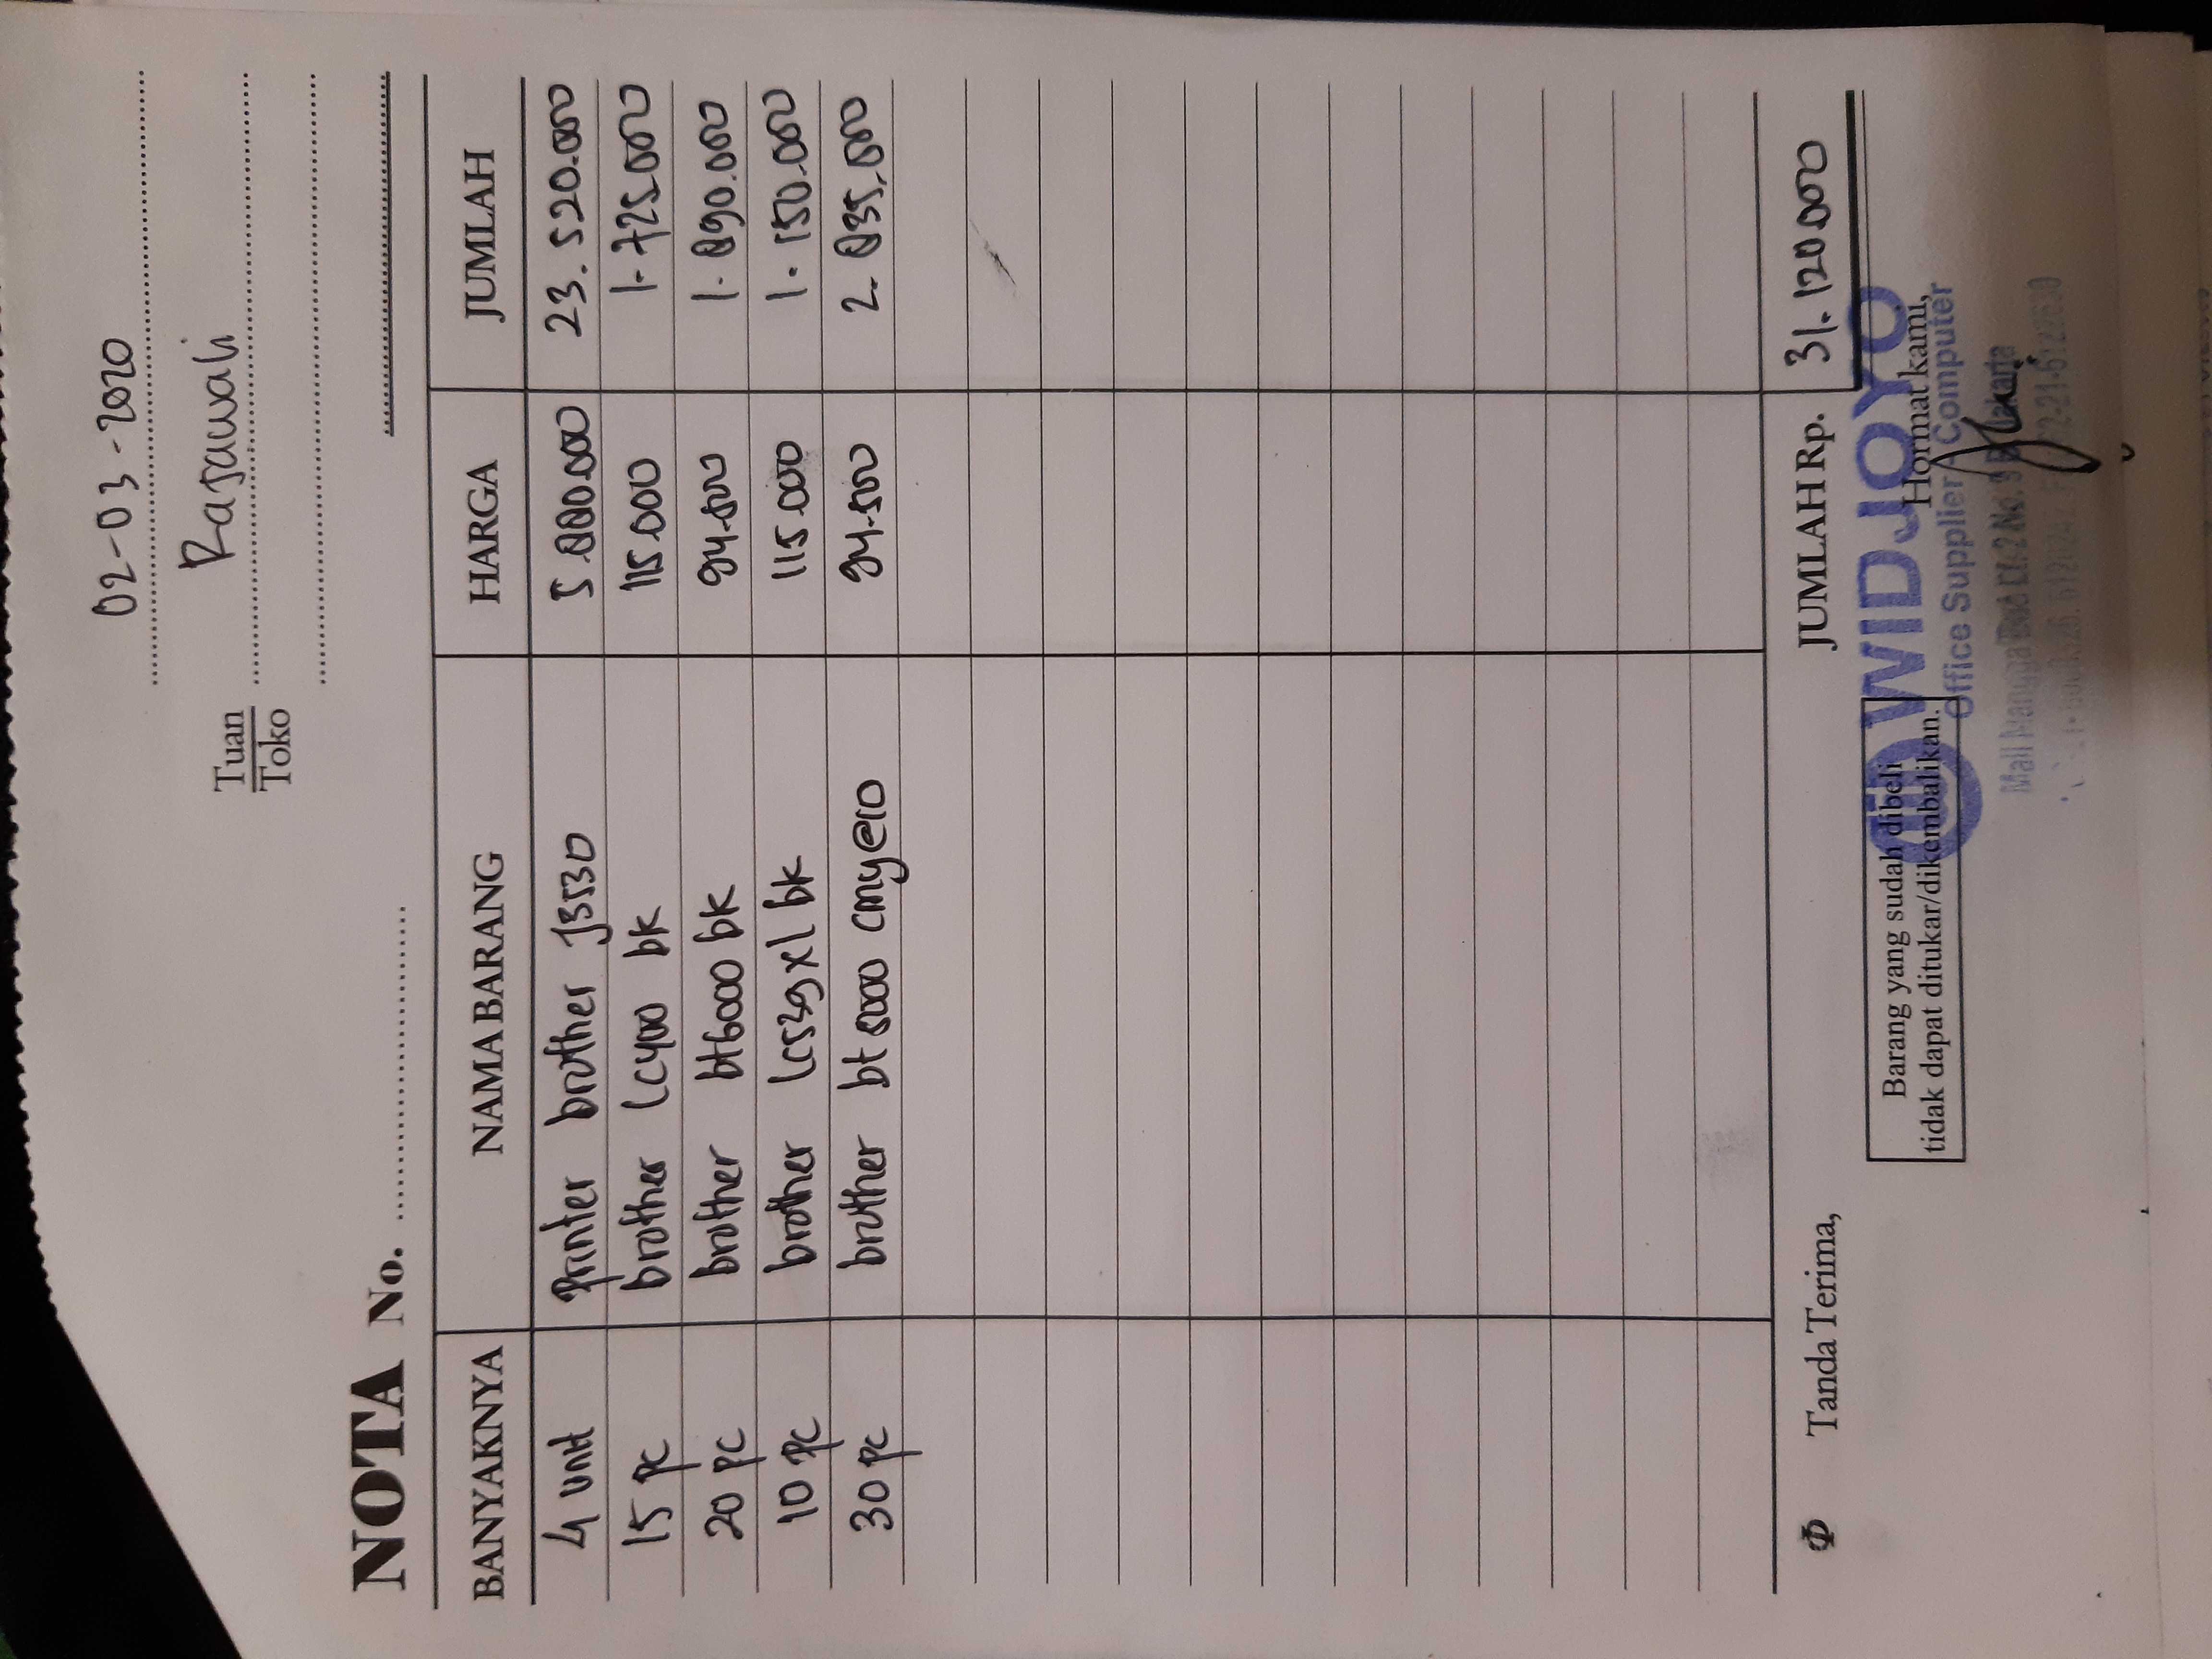 02-03-2020
Tuan
Toko
Rajawali
NOTA No.
BANYAKNYA NAMA BARANG HARGA JUMLAH
4 unit Printer brother J3530 5.880.000 23.520.000
15 pc brother lc400 bk 115.000 1.725.000
20 pc brother bt6000 bk 94.500 1.890.000
10 pc brother lc539xl bk 115.000 1.150.000
30 pc brother bt5000 cmy@10 94.500 2.835.000
Tanda Terima, JUMLAH Rp. 31.120.000
Barang yang sudah dibeli
tidak dapat ditukar/dikembalikan.
Hormat kami,
WIDJOYO
Office Supplier Computer
Mall Mangga Lt. 2 No. Jakarta